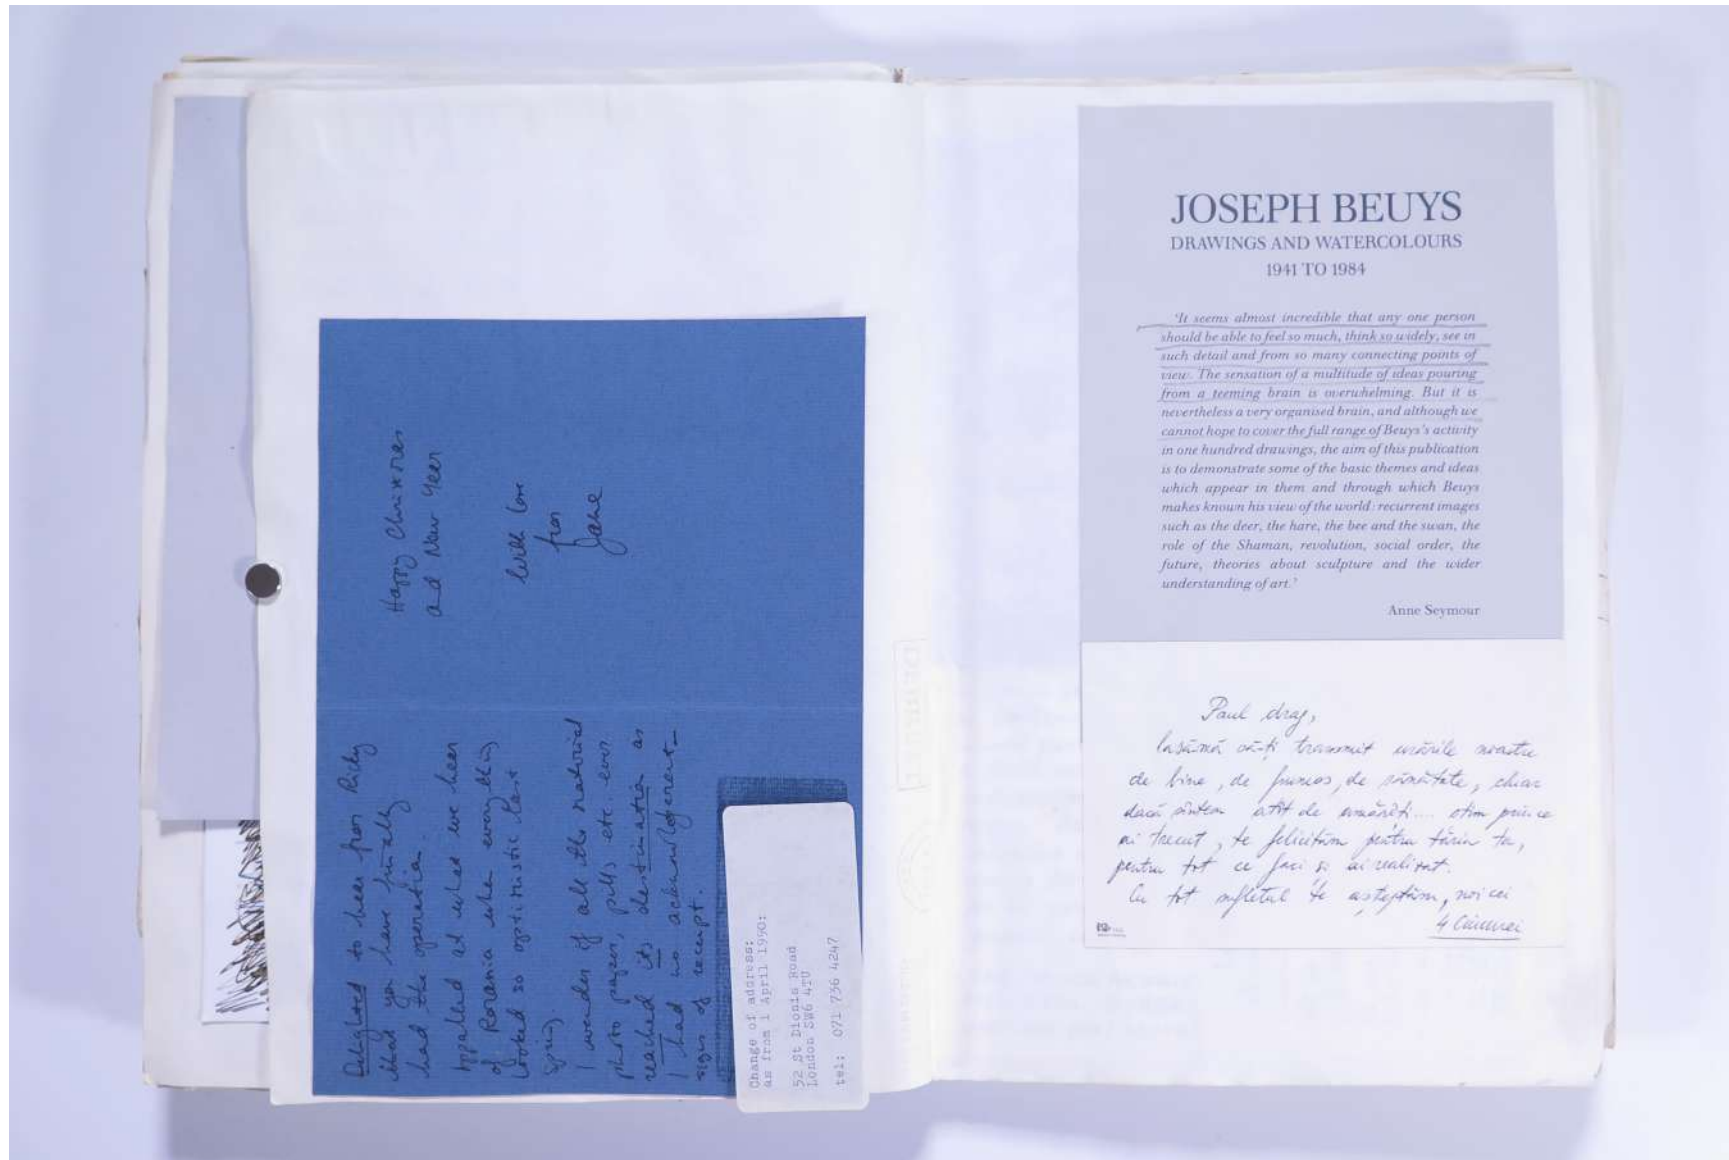 Happy Christmas
and New Year
with love
from
Jane
Delighted to hear from Ricky
that you have finally
had the operation.
Appalled at what we hear
of Romania when everything
looked so optimistic last
Spring.
I wonder if all the material
photo paper, pills etc. ever
reached its destination as
I had no acknowledgement
signs of receipt.
Change of address:
as from 1 April 1990:
52 St Dionis Road
London SW6 4TU
tel: 071 736 4247
JOSEPH BEUYS
DRAWINGS AND WATERCOLOURS
1941 TO 1984
'It seems almost incredible that any one person
should be able to feel so much, think so widely, see in
such detail and from so many connecting points of
view. The sensation of a multitude of ideas pouring
from a teeming brain is overwhelming. But it is
nevertheless a very organised brain, and although we
cannot hope to cover the full range of Beuys's activity
in one hundred drawings, the aim of this publication
is to demonstrate some of the basic themes and ideas
which appear in them and through which Beuys
makes known his view of the world: recurrent images
such as the deer, the hare, the bee and the swan, the
role of the Shaman, revolution, social order, the
future, theories about sculpture and the wider
understanding of art.'
Anne Seymour
Paul drag,
lasă-mă să-ți transmit urările noastre
de bine, de frumos, de sănătate, chiar
dacă sîntem atît de amărîți.... știm prin ce
ai trecut, te felicităm pentru tăria ta,
pentru tot ce faci și ai realizat.
Cu tot sufletul te așteptăm, noi cei
4